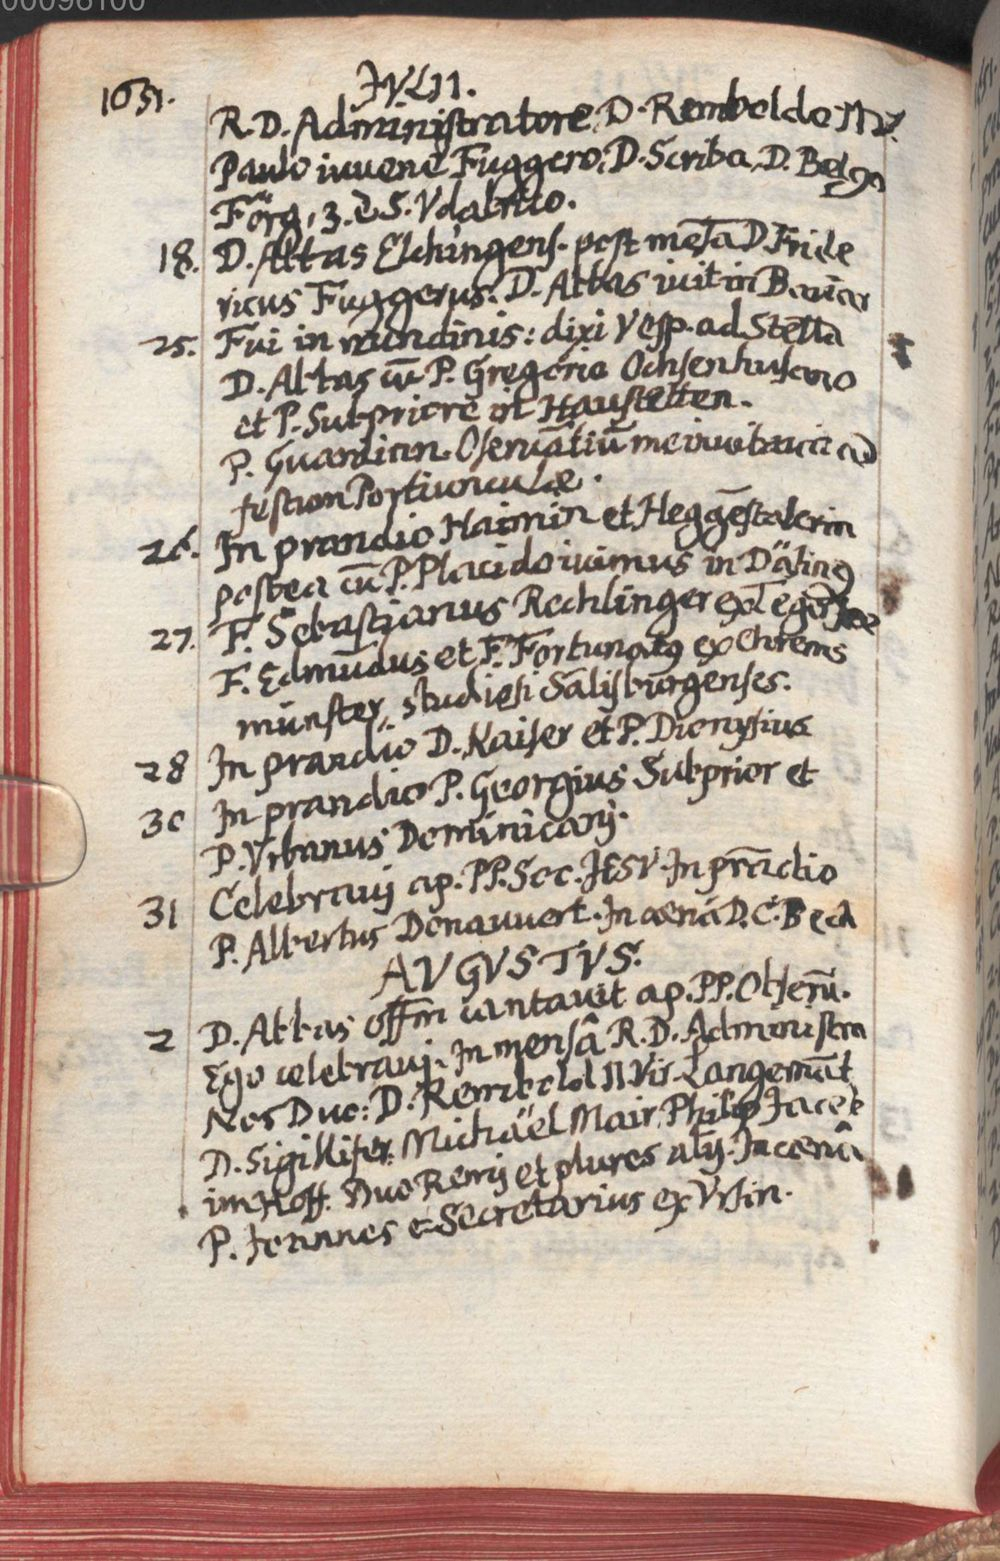 00096100
1651. IVLII.
R. D. Administratore, D. Rembolde II V.
Paulo iuuene Fuggero, D. Scriba, D. Belgo
Förg, 3. è S. Vdalrico.
18. D. Abbas Elchingens. post mēsā D. Fride
ricus Fuggerus. D. Abbas iuit in Bauar
25. Fui in nundinis: dixi Vesp. ad Stellā
D. Abbas cū P. Gregorio Ochsenhusano
et P. Subpriore in Haustetten.
P. Guardian. Obseruātiū me inuitauit ad
festum Portiunculæ.
26. In prandio Haimin et Heggēstalerin
postea cū P. Placido iuimus in Däfing
27. F. Sebastianus Rechlinger ex Tegērsee
F. Edmundus et F. Fortunatq ex Chrems
münster, studiosi Salisburgenses.
28 In prandio D. Kaiser et P. Dionysius
30 In prandio P. Georgius Subprior et
P. Vrbanus Dominicanij.
31 Celebrauj ap. PP. Soc. IESV. In prādio
P. Albertus Donauwert. In cœnâ D. C. Beck
AVGVSTVS.
2 D. Abbas offm cantauit ap. PP. Obseru̅.
Ego celebrauj. In mensâ R. D. Administra
Nos Duo: D. Rembold II Vir. Langemāt
D. Sigillifer. Michaël Mair, Philip Jacob
im Hoff. Duo Remij et plures alij. In cœnâ
P. Joannes et Secretarius ex Vrsin.